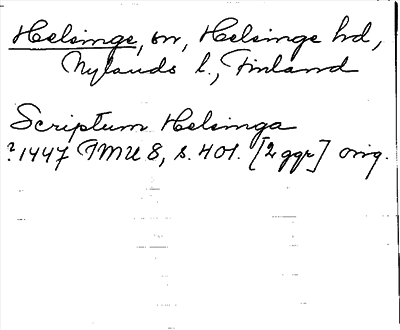 Helsinge, sn, Helsinge hd,
Nylands l., Finland
Scriptum Helsinga
?1447 FMU 8, s. 401. [2 ggr] orig.